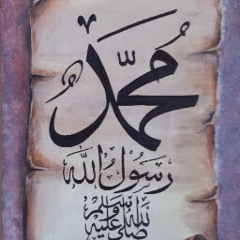 مُحَمَّد
رَسُولُ اللّٰه
صلى الله عليه وسلم